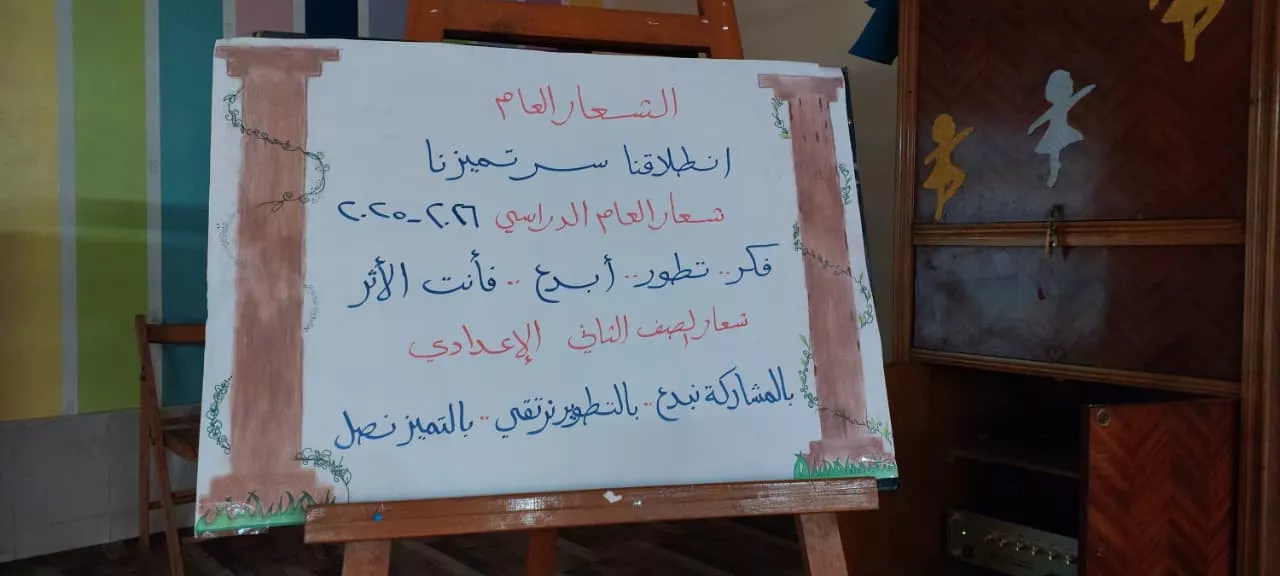 الشعار العام
انطلاقنا سر تميزنا
شعار العام الدراسي ٢٠٢٦-٢٠٢٥
فكر.. تطور.. أبدع .. فأنت الأثر
شعار الصف الثاني الإعدادي
بالمشاركة نبدع.. بالتطوير نرتقي.. بالتميز نصل